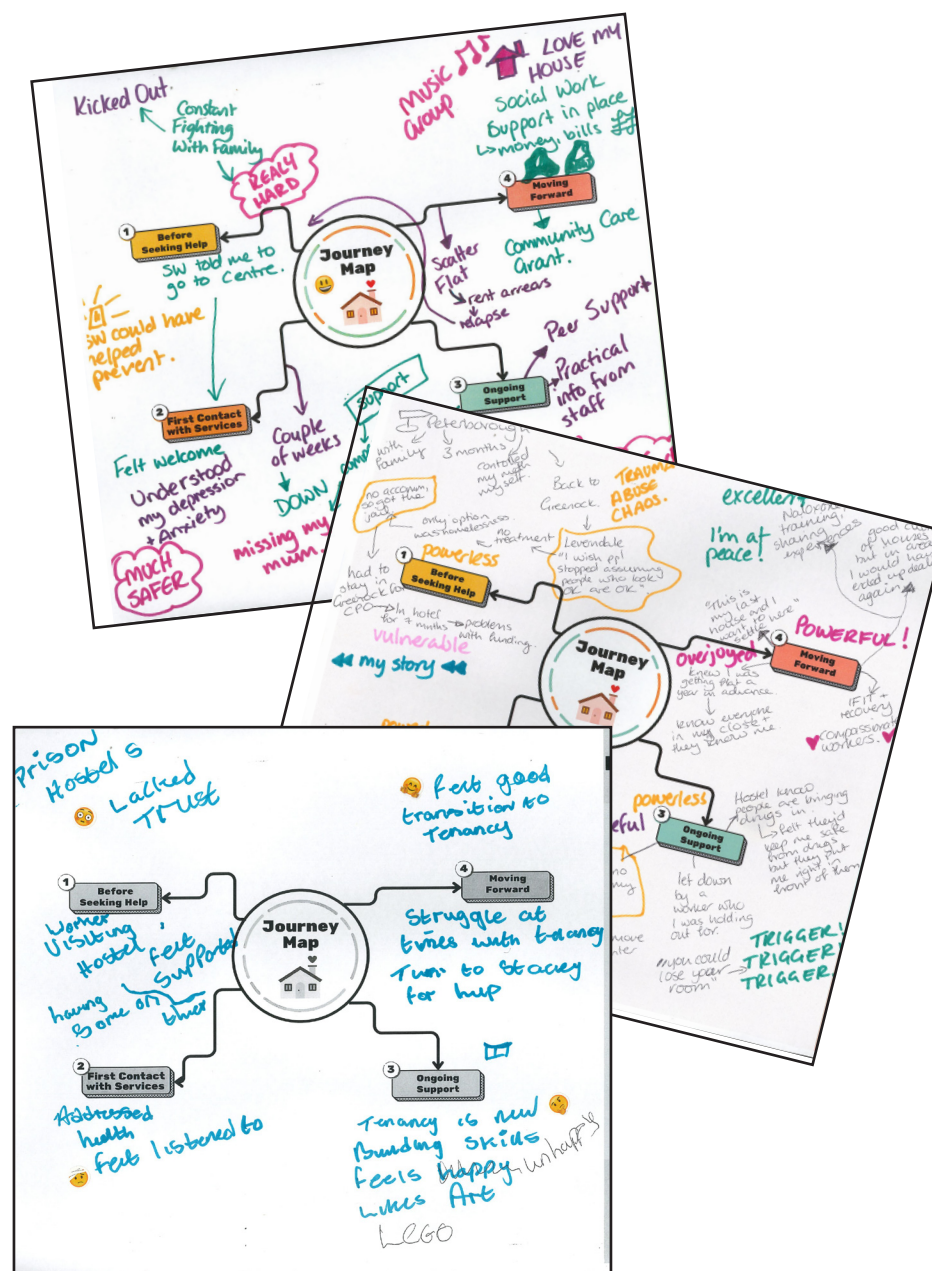 Kicked Out
Constant
Fighting
With Family
REALY
HARD
MUSIC
Group
LOVE MY
HOUSE
Social Work
Support in place
money, bills ££
4
Moving
Forward
Community Care
Grant.
1
Before
Seeking Help
SW told me to
go to Centre.
Journey
Map
Scatter
Flat
rent arrears
relapse
SW could have
helped
prevent.
Peer Support
Practical
info from
staff
3
Ongoing
Support
Support
2
First Contact
with Services
Felt welcome
Understood
my depression
+ Anxiety
MUCH
SAFER
Couple
of weeks
DOWN
missing my
mum.
Peterborough
with
family
3 months
controlled
my meth
myself.
Back to
Greenock.
TRAUMA
ABUSE
CHAOS.
no accomm,
so got the
jail
only option
was homelessness.
no
treatment
Levendale
"I wish ppl
stopped assuming
people who look
OK are OK".
powerless
1
Before
Seeking Help
had to
stay in
Greenock for
CPO
In hotel
for 7 mnths
problems
with funding.
vulnerable
my story
excellent
I'm at
peace!
Naloxone
training,
sharing
experiences
good
of houses
but in area
I would have
ended up dealing
again
"This is
my last
house and I
want to
settle here"
POWERFUL!
overjoyed
4
Moving
Forward
knew I was
getting flat a
year in advance.
know everyone
in my close +
they know me
IFIT +
recovery
compassionate
workers.
Journey
Map
powerless
3
Ongoing
Support
Hostel know
people are bringing
drugs in
felt they'd
keep me safe
from drugs
but they put
me right in
front of them
let down
by a
worker who
I was holding
out for.
"you could
lose your
room"
TRIGGER!
TRIGGER!
TRIGGER!
Prison
Hostels
Lacked
TRUST
Felt good
transition to
Tenancy
1
Before
Seeking Help
Worker
Visiting
Hostel,
felt
supported
having
some on
4
Moving
Forward
Struggle at
times with tenancy
Turn to Stacey
for help
Journey
Map
2
First Contact
with Services
Addressed
health
Felt listened to
3
Ongoing
Support
Tenancy is new
Building skills
feels happy
unhappy
Likes Art
LEGO